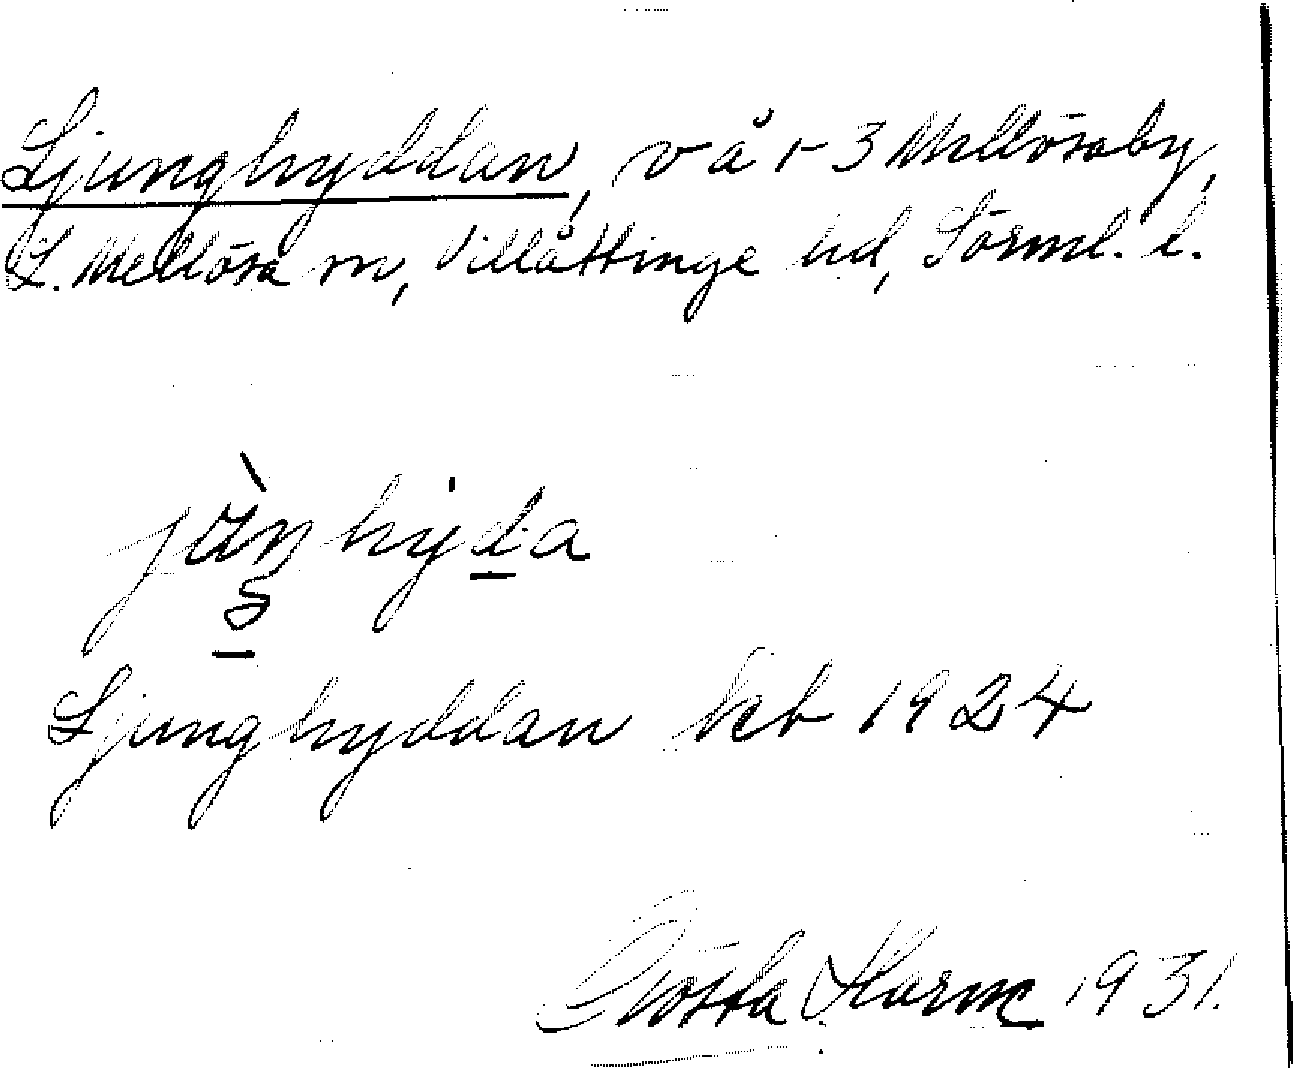 Ljunghyddan, vå 1-3 Mellösaby,
L. Mellösa sn, Villåttinge hd, Sörml. l.
Ljunghyddan kb 1924
Gösta Harm 1931.